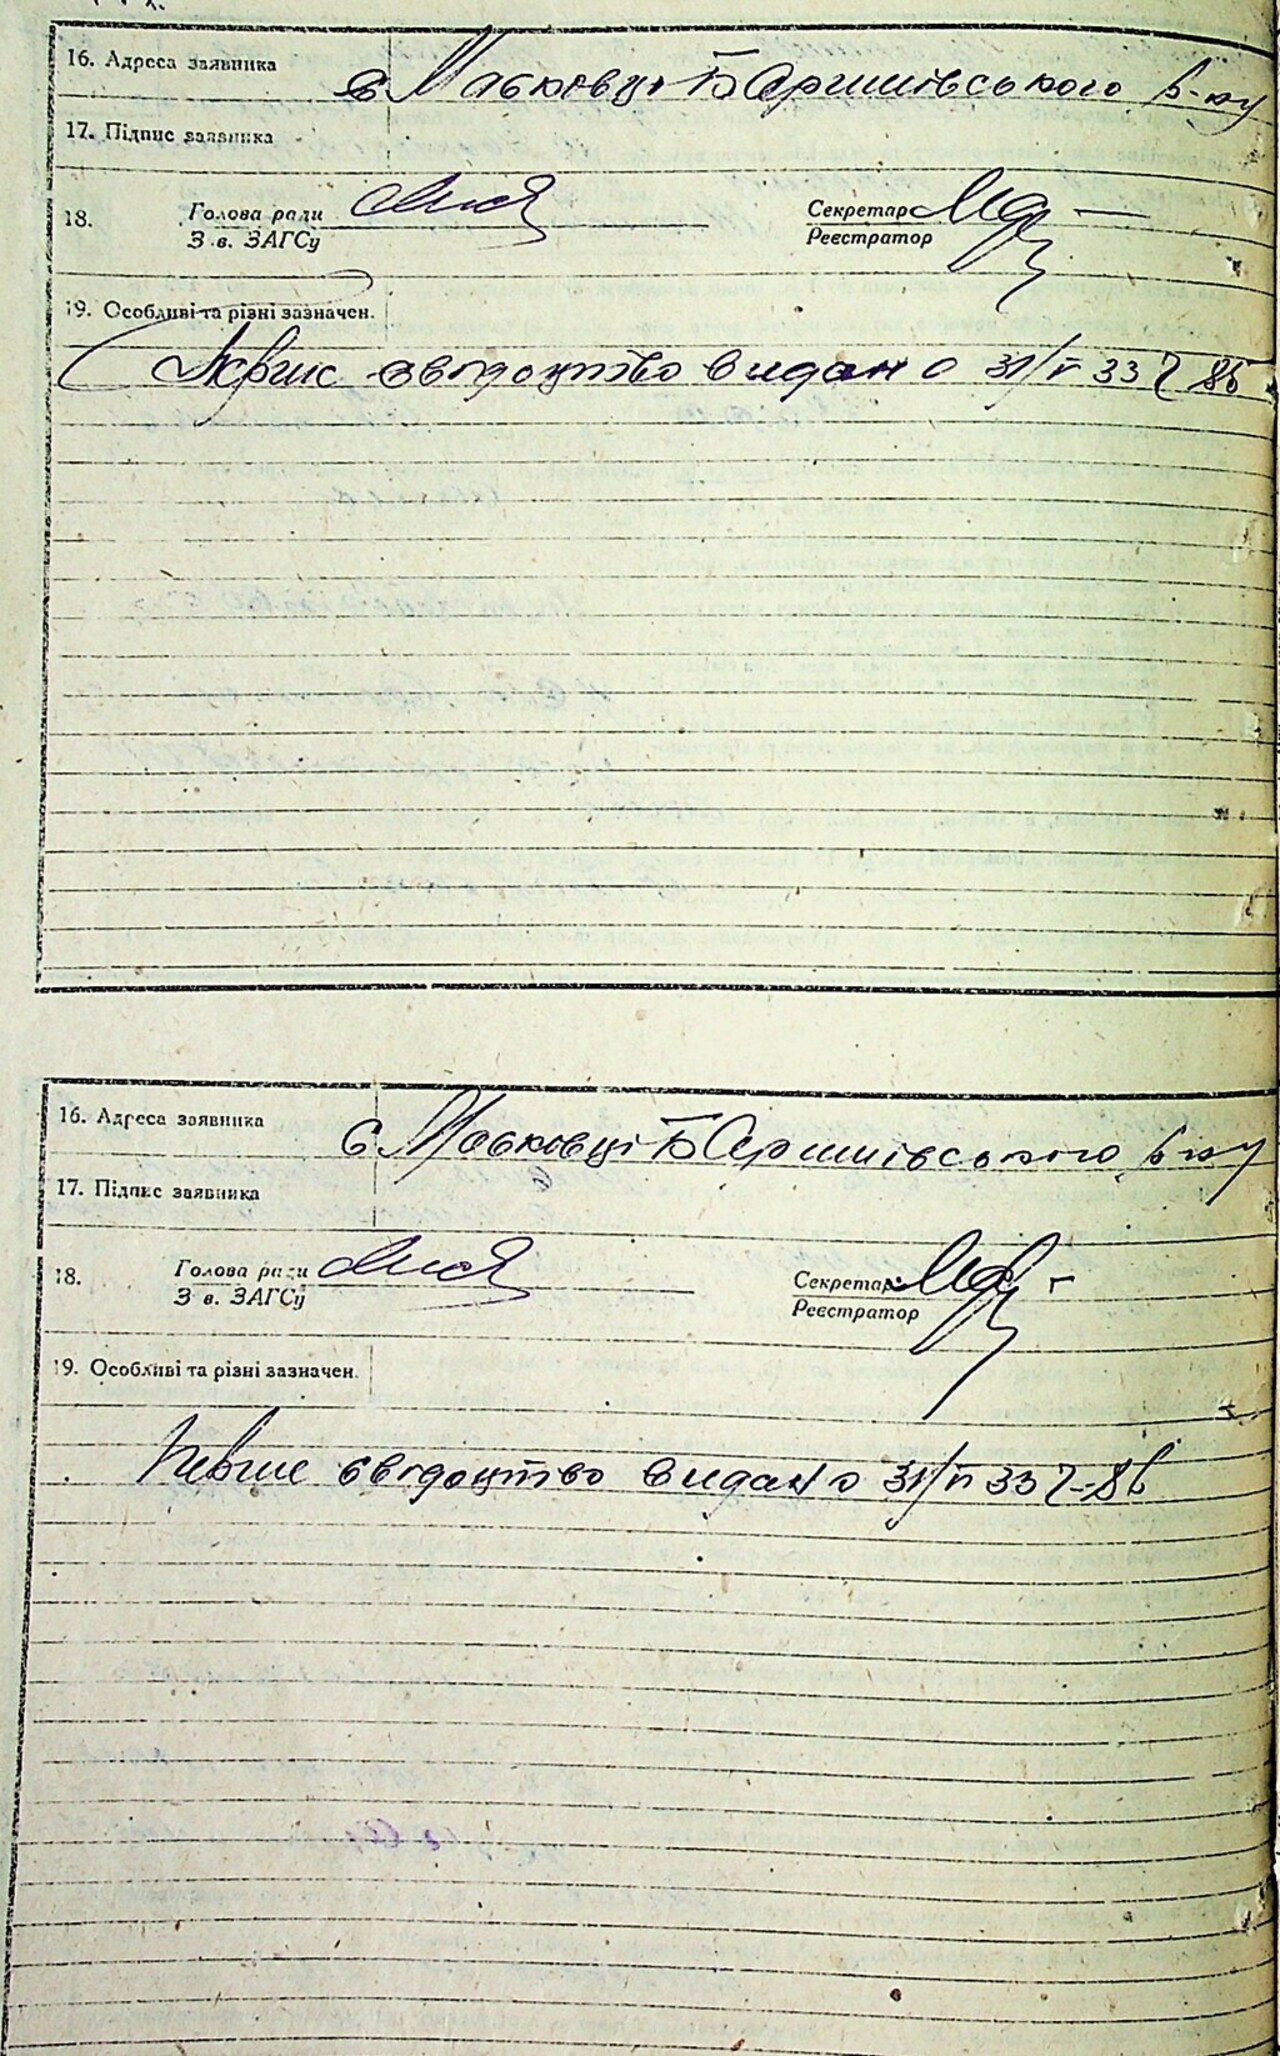 16. Адреса заявника с Мавковці Баришівського р-ну
17. Підпис заявника
18. Голова ради Секретар
З в. ЗАГСу Реєстратор
19. Особливі та різні зазначен.
Перше свідоцтво видано 31/V 33 г
16. Адреса заявника с Мавковці Баришівського р-ну
17. Підпис заявника
18. Голова ради Секретар
З в. ЗАГСу Реєстратор
19. Особливі та різні зазначен.
Перше свідоцтво видано 33 г